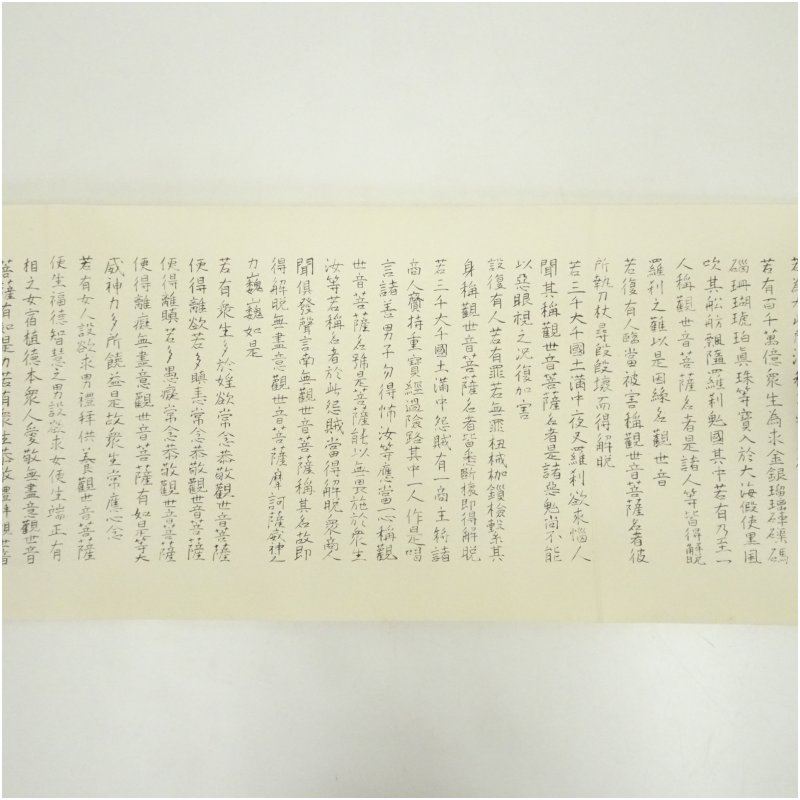 若有百千萬億衆生為求金銀瑠璃硨磲碼
碯珊瑚琥珀眞珠等寶入於大海假使黒風
吹其舩舫飄墮羅刹鬼國其中若有乃至一
人稱觀世音菩薩名者是諸人等皆得解脱
羅刹之難以是因緣名觀世音
若復有人臨當被害稱觀世音菩薩名者彼
所執刀杖尋段段壞而得解脱
若三千大千國土滿中夜叉羅刹欲來惱人
聞其稱觀世音菩薩名者是諸惡鬼尚不能
以惡眼視之况復加害
設復有人若有罪若無罪杻械枷鎖檢繋其
身稱觀世音菩薩名者皆悉斷壞即得解脱
若三千大千國土滿中怨賊有一商主將諸
商人齎持重寶經過險路其中一人作是唱
言諸善男子勿得怖汝等應當一心稱觀
世音菩薩名號是菩薩能以無畏施於衆生
汝等若稱名者於此怨賊當得解脱衆商人
聞俱發聲言南無觀世音菩薩稱其名故即
得解脱無盡意觀世音菩薩摩訶薩威神之
力巍巍如是
若有衆生多於婬欲常念恭敬觀世音菩薩
便得離欲若多瞋恚常念恭敬觀世音菩薩
便得離瞋若多愚癡常念恭敬觀世音菩薩
便得離癡無盡意觀世音菩薩有如是等大
威神力多所饒益是故衆生常應心念
若有女人設欲求男禮拜供養觀世音菩薩
便生福德智慧之男設欲求女便生端正有
相之女宿植德本衆人愛敬無盡意觀世音
菩薩有如是力若有衆生恭敬禮拜觀世音